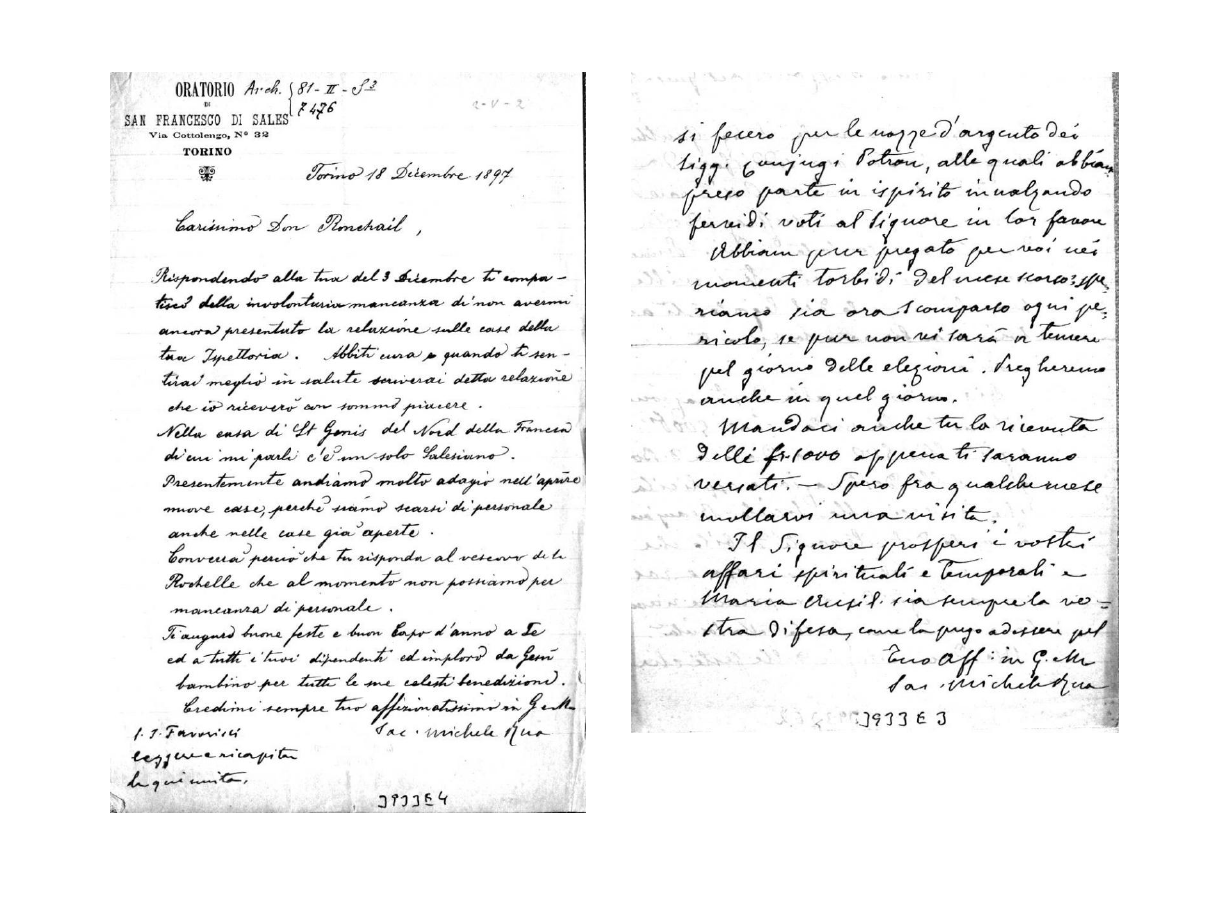 ORATORIO
DI
SAN FRANCESCO DI SALES
Via Cottolengo, N° 32
TORINO
Arch. 81 - II - S³
7476
2-V-2
Torino 18 Dicembre 1897
Carissimo Don Ronchail,
Rispondendo alla tua del 3 Dicembre ti compa-
tisco della involontaria mancanza di non avermi
ancora presentato la relazione sulle case della
tua Ispettoria. Abbiti cura e quando ti sen-
tirai meglio in salute scriverai detta relazione
che io riceverò con sommo piacere.
Nella casa di St Genis del Nord della Francia
di cui mi parli c'è un solo Salesiano.
Presentemente andiamo molto adagio nell'aprire
nuove case, perchè siamo scarsi di personale
anche nelle case già aperte.
Converrà perciò che tu risponda al vescovo de la
Rochelle che al momento non possiamo per
mancanza di personale.
Ti auguro buone feste e buon Capo d'anno a Te
ed a tutti i tuoi dipendenti ed imploro da Gesù
bambino per tutti le sue celesti benedizioni.
Credimi sempre tuo affezionatissimo in G. e M.
Sac. Michele Rua
P. S. Favorisci
leggere e ricapitar
la qui unita.
3933E4
si fecero per le nozze d'argento dei
Sigg. Conjugi Potron, alle quali abbiam
preso parte in ispirito innalzando
fervidi voti al Signore in lor favore
Abbiam pur pregato per voi nei
momenti torbidi del mese scorso; spe-
riamo sia ora scomparso ogni pe-
ricolo, se pur non vi sarà a temere
pel giorno delle elezioni. Pregheremo
anche in quel giorno.
Mandaci anche tu la ricevuta
delli fr. 1000 appena ti saranno
versati. - Spero fra qualche mese
una visita.
Il Signore prosperi i vostri
affari spirituali e temporali e
Maria Ausil. sia sempre la vo-
stra difesa, come la prego ad essere pel
Tuo Aff. in G. e M.
Sac. Michele Rua
3933E3